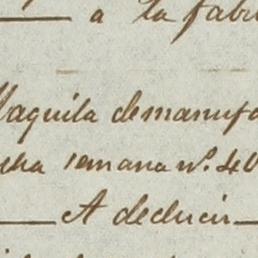 a la fabri
Maquila demanufa
cha semana nº. 40
A deducir